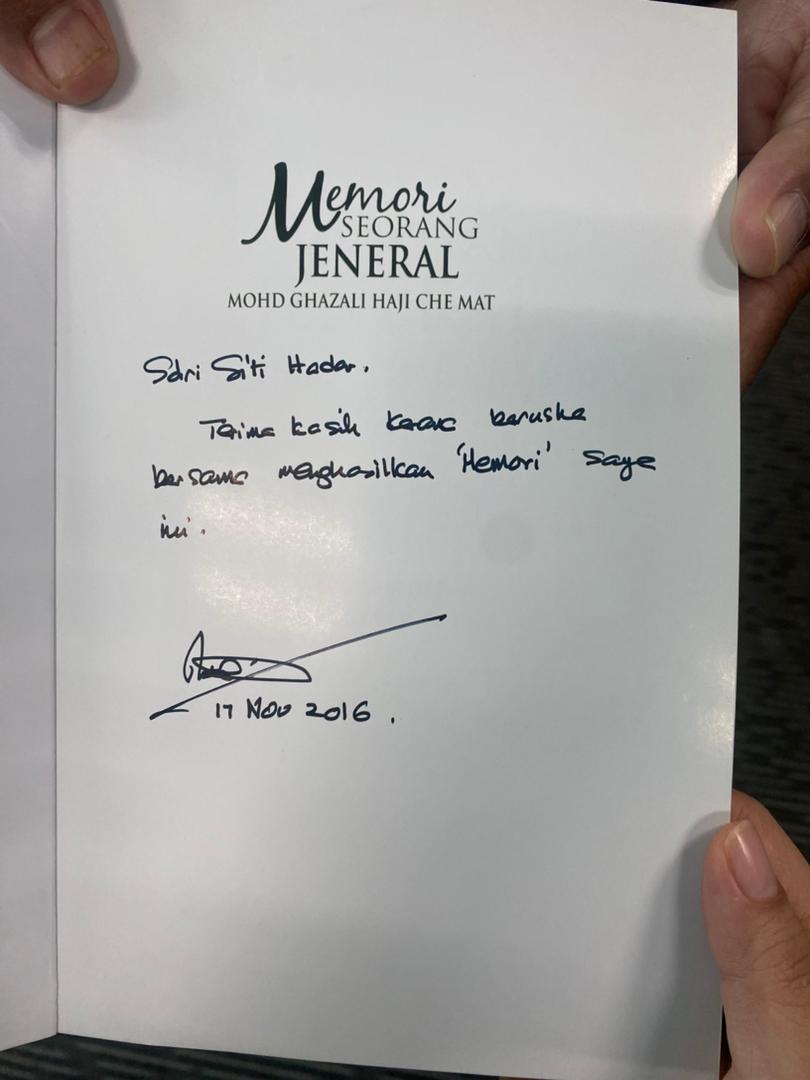 Memori
SEORANG
JENERAL
MOHD GHAZALI HAJI CHE MAT
Sdri Siti Hadar.
Terima kasih kerana berusaha
bersama menghasilkan 'Memori' saya
ini.
17 NOV 2016.